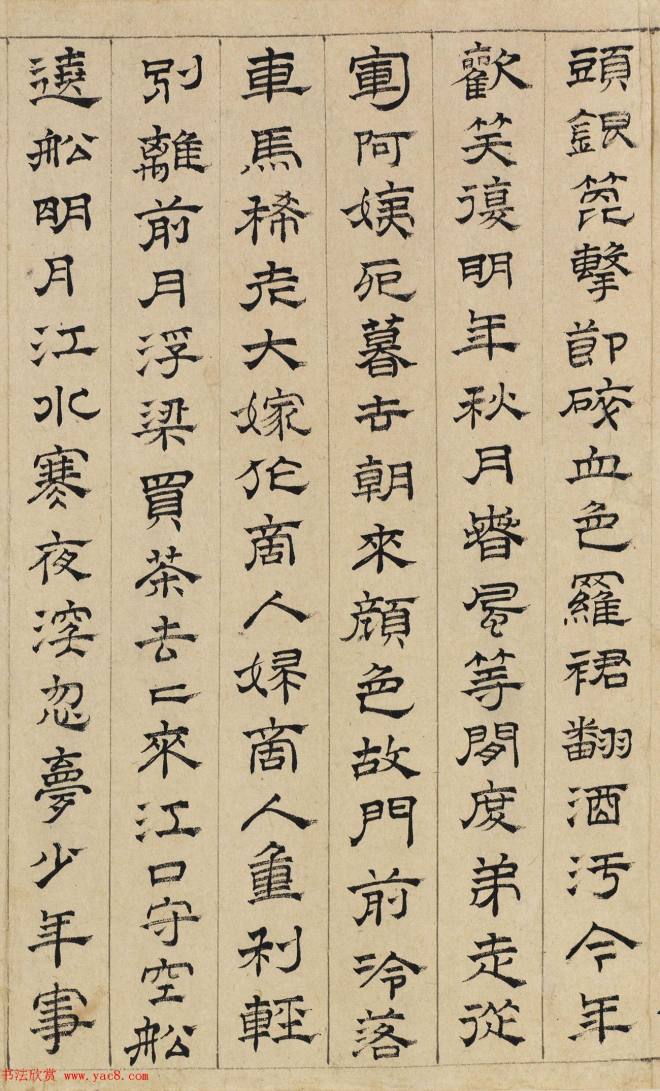 頭銀篦擊節碎血色羅裙翻酒汚今年
歡笑復明年秋月春風等閒度弟走從
軍阿姨死暮去朝來顏色故門前冷落
車馬稀老大嫁作商人婦商人重利輕
別離前月浮梁買茶去去來江口守空船
遶船明月江水寒夜深忽夢少年事
书法欣赏 www.yac8.com